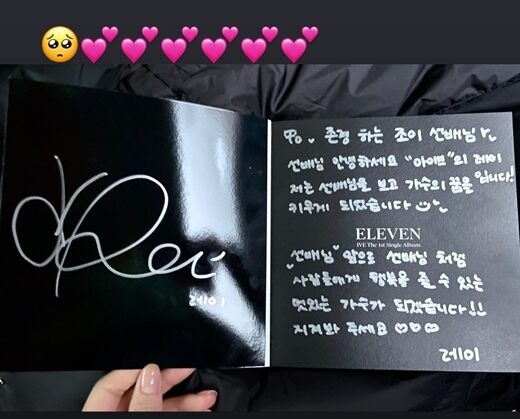 Rei
레이
To. 존경 하는 조이 선배님
선배님 안녕하세요 "아이브"의 레이
입니다!
저는 선배님을 보고 가수의 꿈을
키우게 되었습니다
ELEVEN
IVE The 1st Single Album
"선배님" 앞으로 선배님 처럼
사람들에게 행복을 줄 수 있는
멋있는 가수가 되겠습니다!!
지켜봐 주세요 ♡♡♡
레이